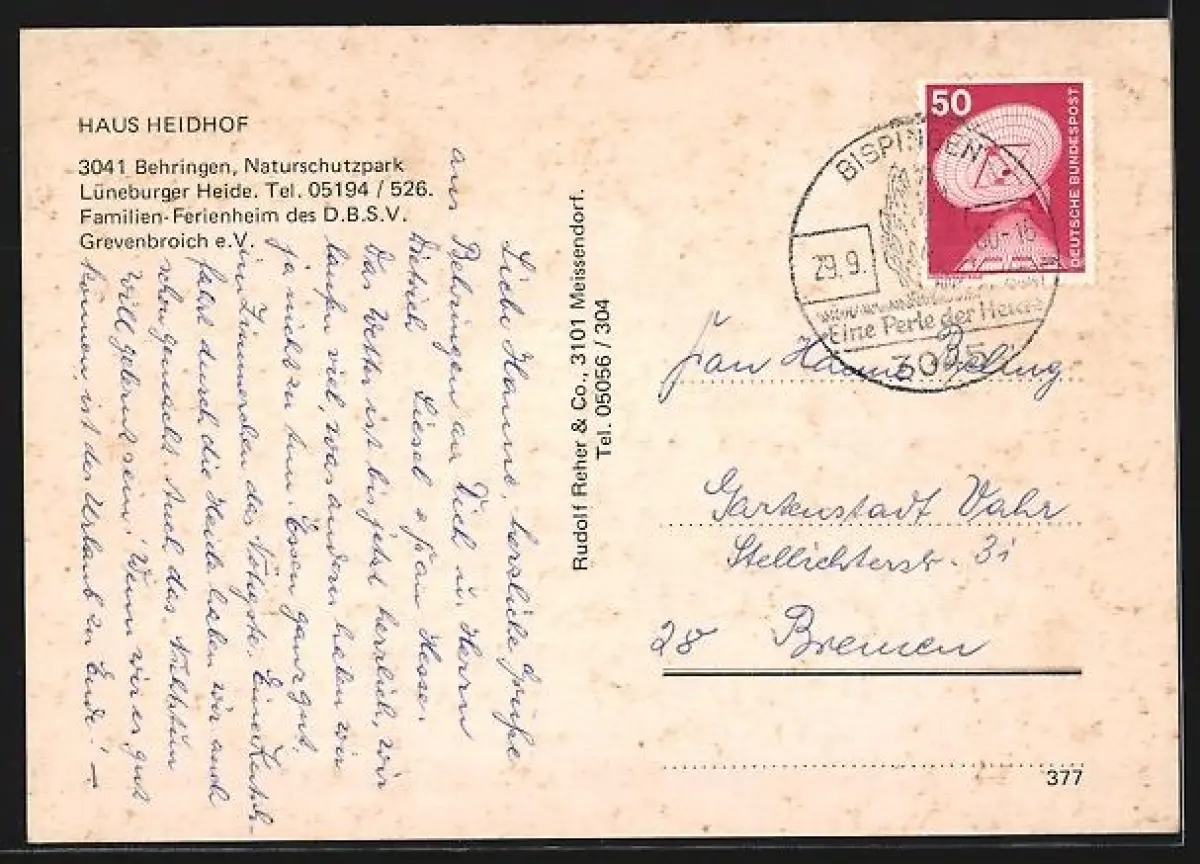 HAUS HEIDHOF
3041 Behringen, Naturschutzpark
Lüneburger Heide. Tel. 05194 / 526.
Familien-Ferienheim des D.B.S.V.
Grevenbroich e.V.
Liebe Hanna, herzliche Grüße
aus Behringen an Dich u. Herrn
Dietrich Liesel u. Frau Hesse.
Das Wetter ist bis jetzt herrlich, wir
laufen viel, was anderes haben wir
ja nicht zu tun. Essen ganz gut,
im Zimmerchen das Nötigste. Eine Kutsch-
fahrt durch die Heide haben wir auch
schon gemacht. Auch das Nichtstun
will gelernt sein! Wenn wir es gut
können, ist der Urlaub zu Ende! –
Rudolf Reher & Co., 3101 Meissendorf.
Tel. 05056 / 304
50
DEUTSCHE BUNDESPOST
BISPINGEN
29.9.
Eine Perle der Heide
Frau Hanna
Gartenstadt Vahr
Stellichterstr. 31
28 Bremen
377